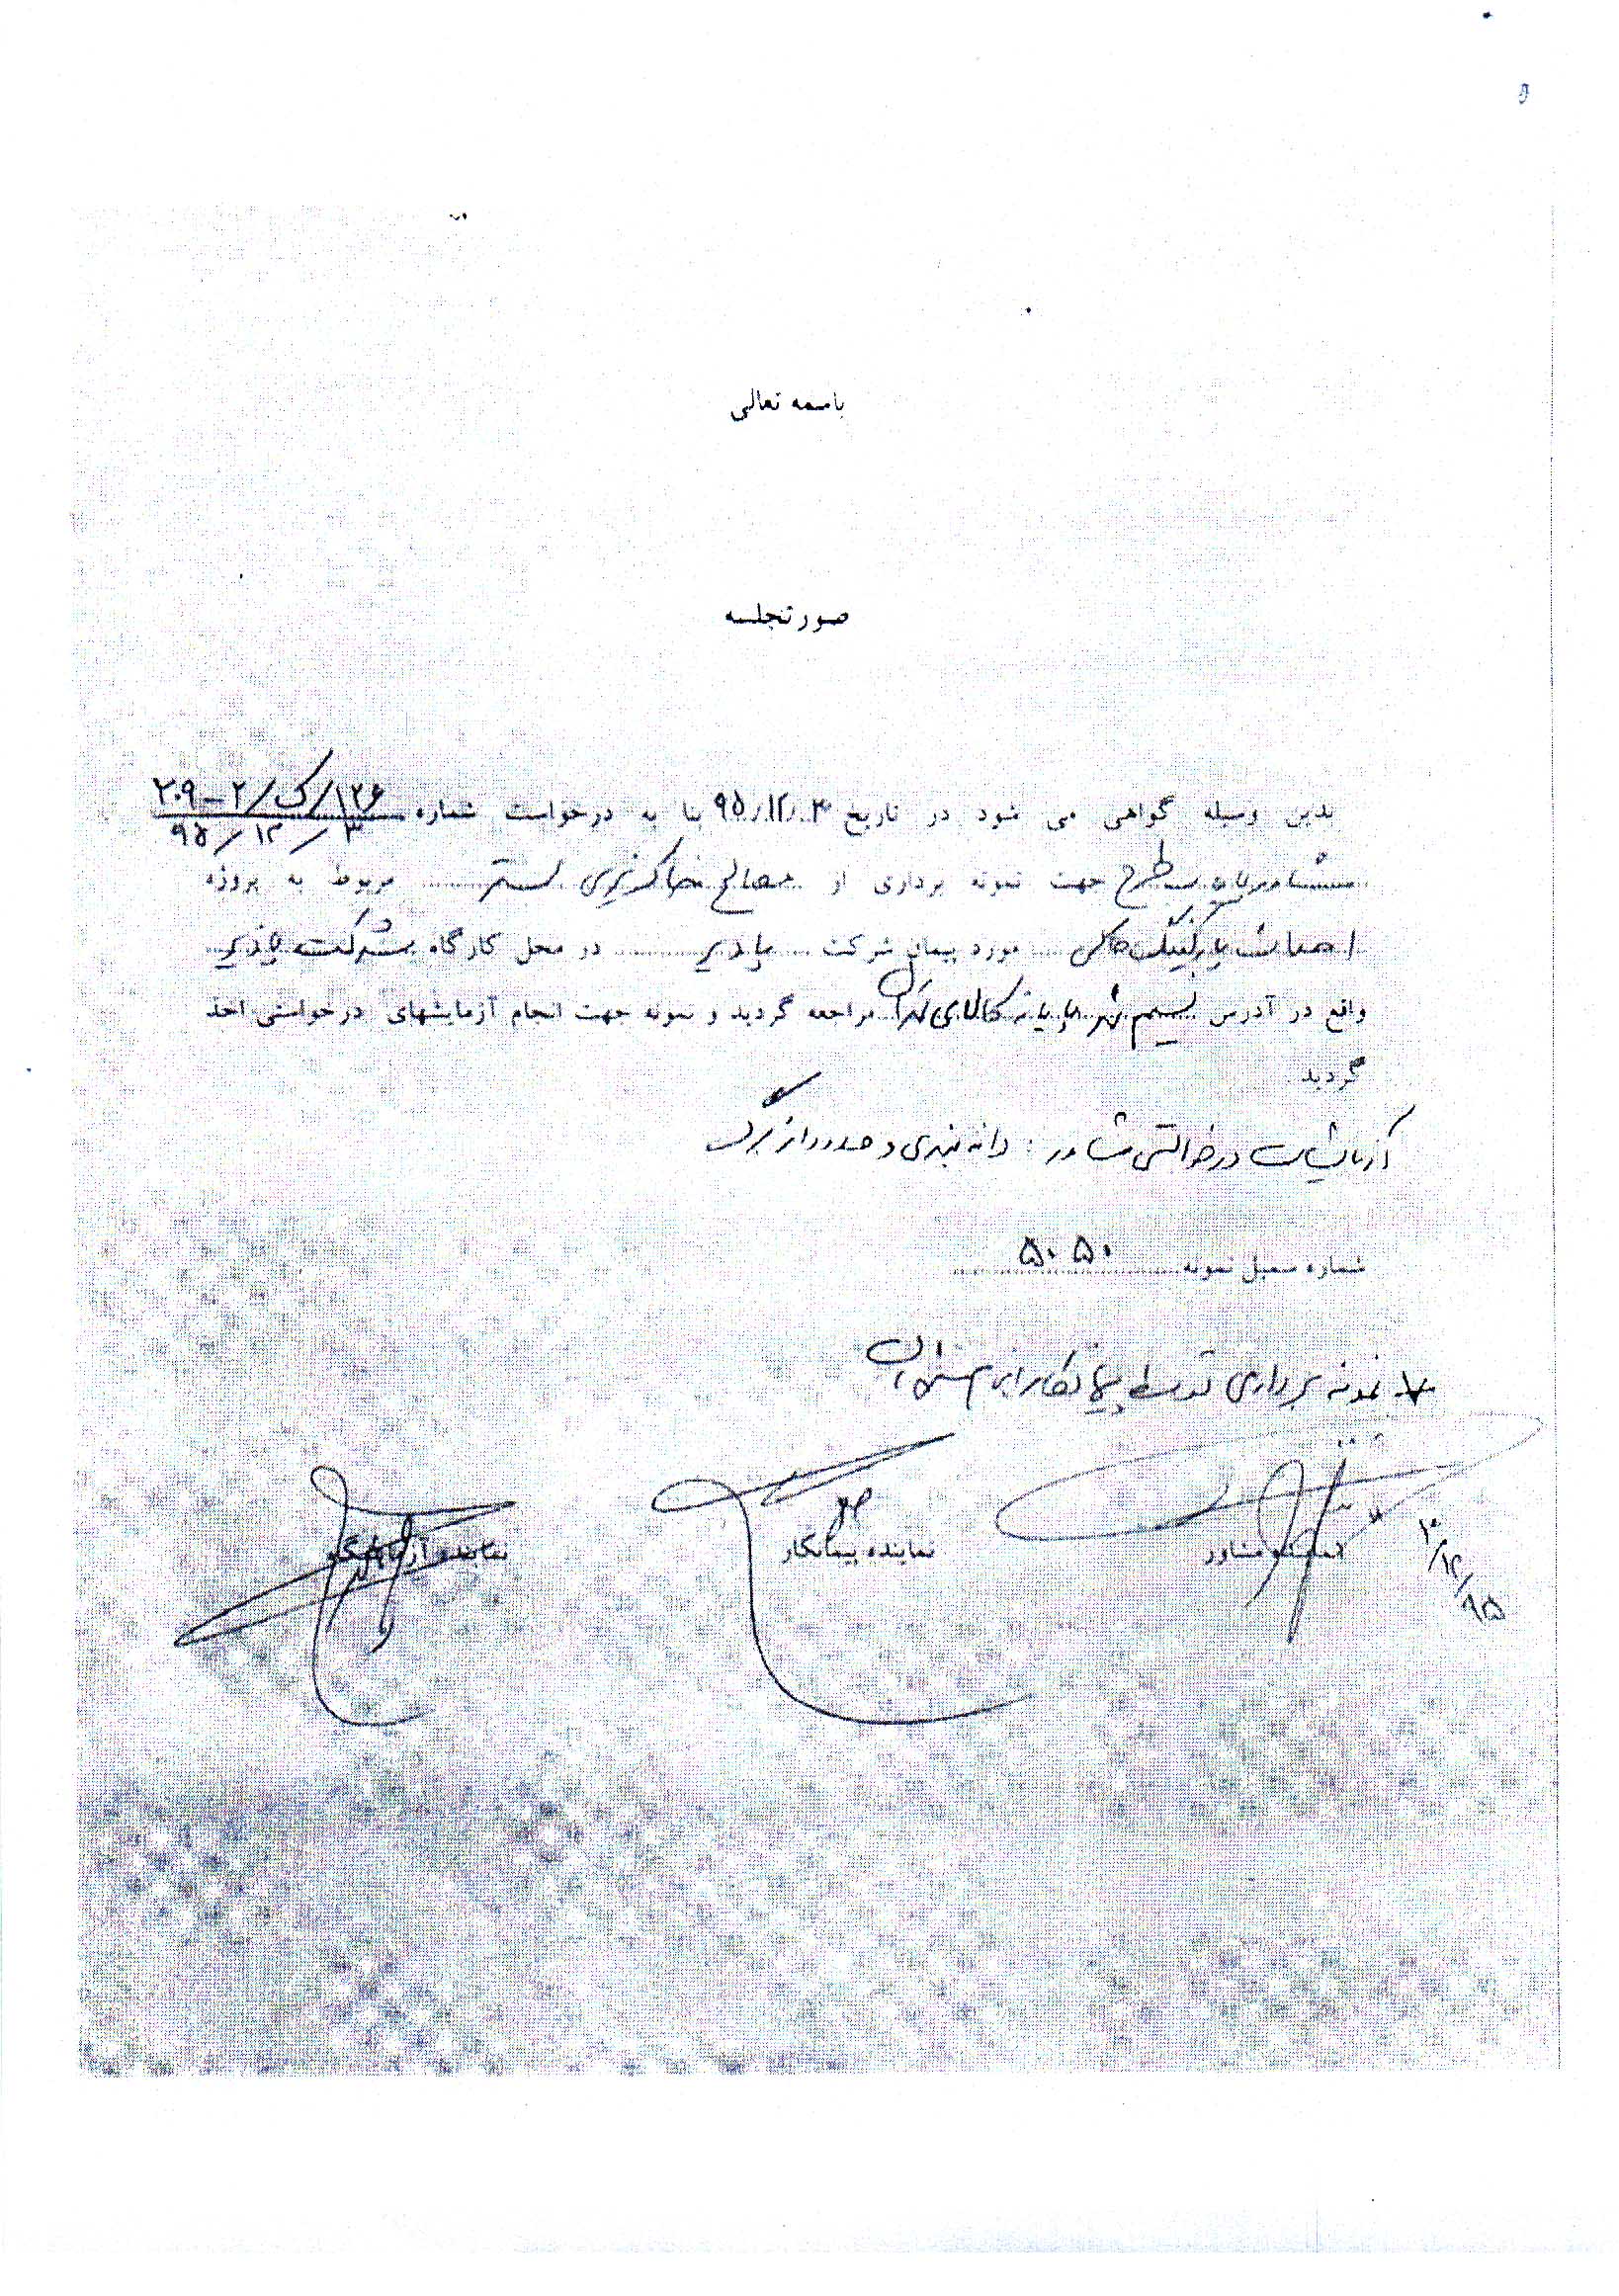 باسمه تعالی
صورتجلسه
بدین وسیله گواهی می شود در تاریخ ۹۵/۱۲/۰۳ بنا به درخواست شماره ۱۲۶/ک/۲-۲۰۹
۹۵/۱۲/۳
مشاور طرح جهت نمونه برداری از مصالح خاکریزی بستر مربوط به پروژه
احداث پارکینگ مورد پیمان شرکت پاذیر در محل کارگاه شرکت پاذیر
واقع در آدرس نسیم شهر پایانه کالای تهران مراجعه گردید و نمونه جهت انجام آزمایشهای درخواستی اخذ
گردید
آزمایشات درخواستی مشاور : دانه بندی و حدود اتربرگ
شماره سمبل نمونه ۵۰۵۰
* نمونه برداری توسط پیمانکار انجام
نماینده مشاور نماینده پیمانکار نماینده آزمایشگاه
۹۵/۱۲/۳